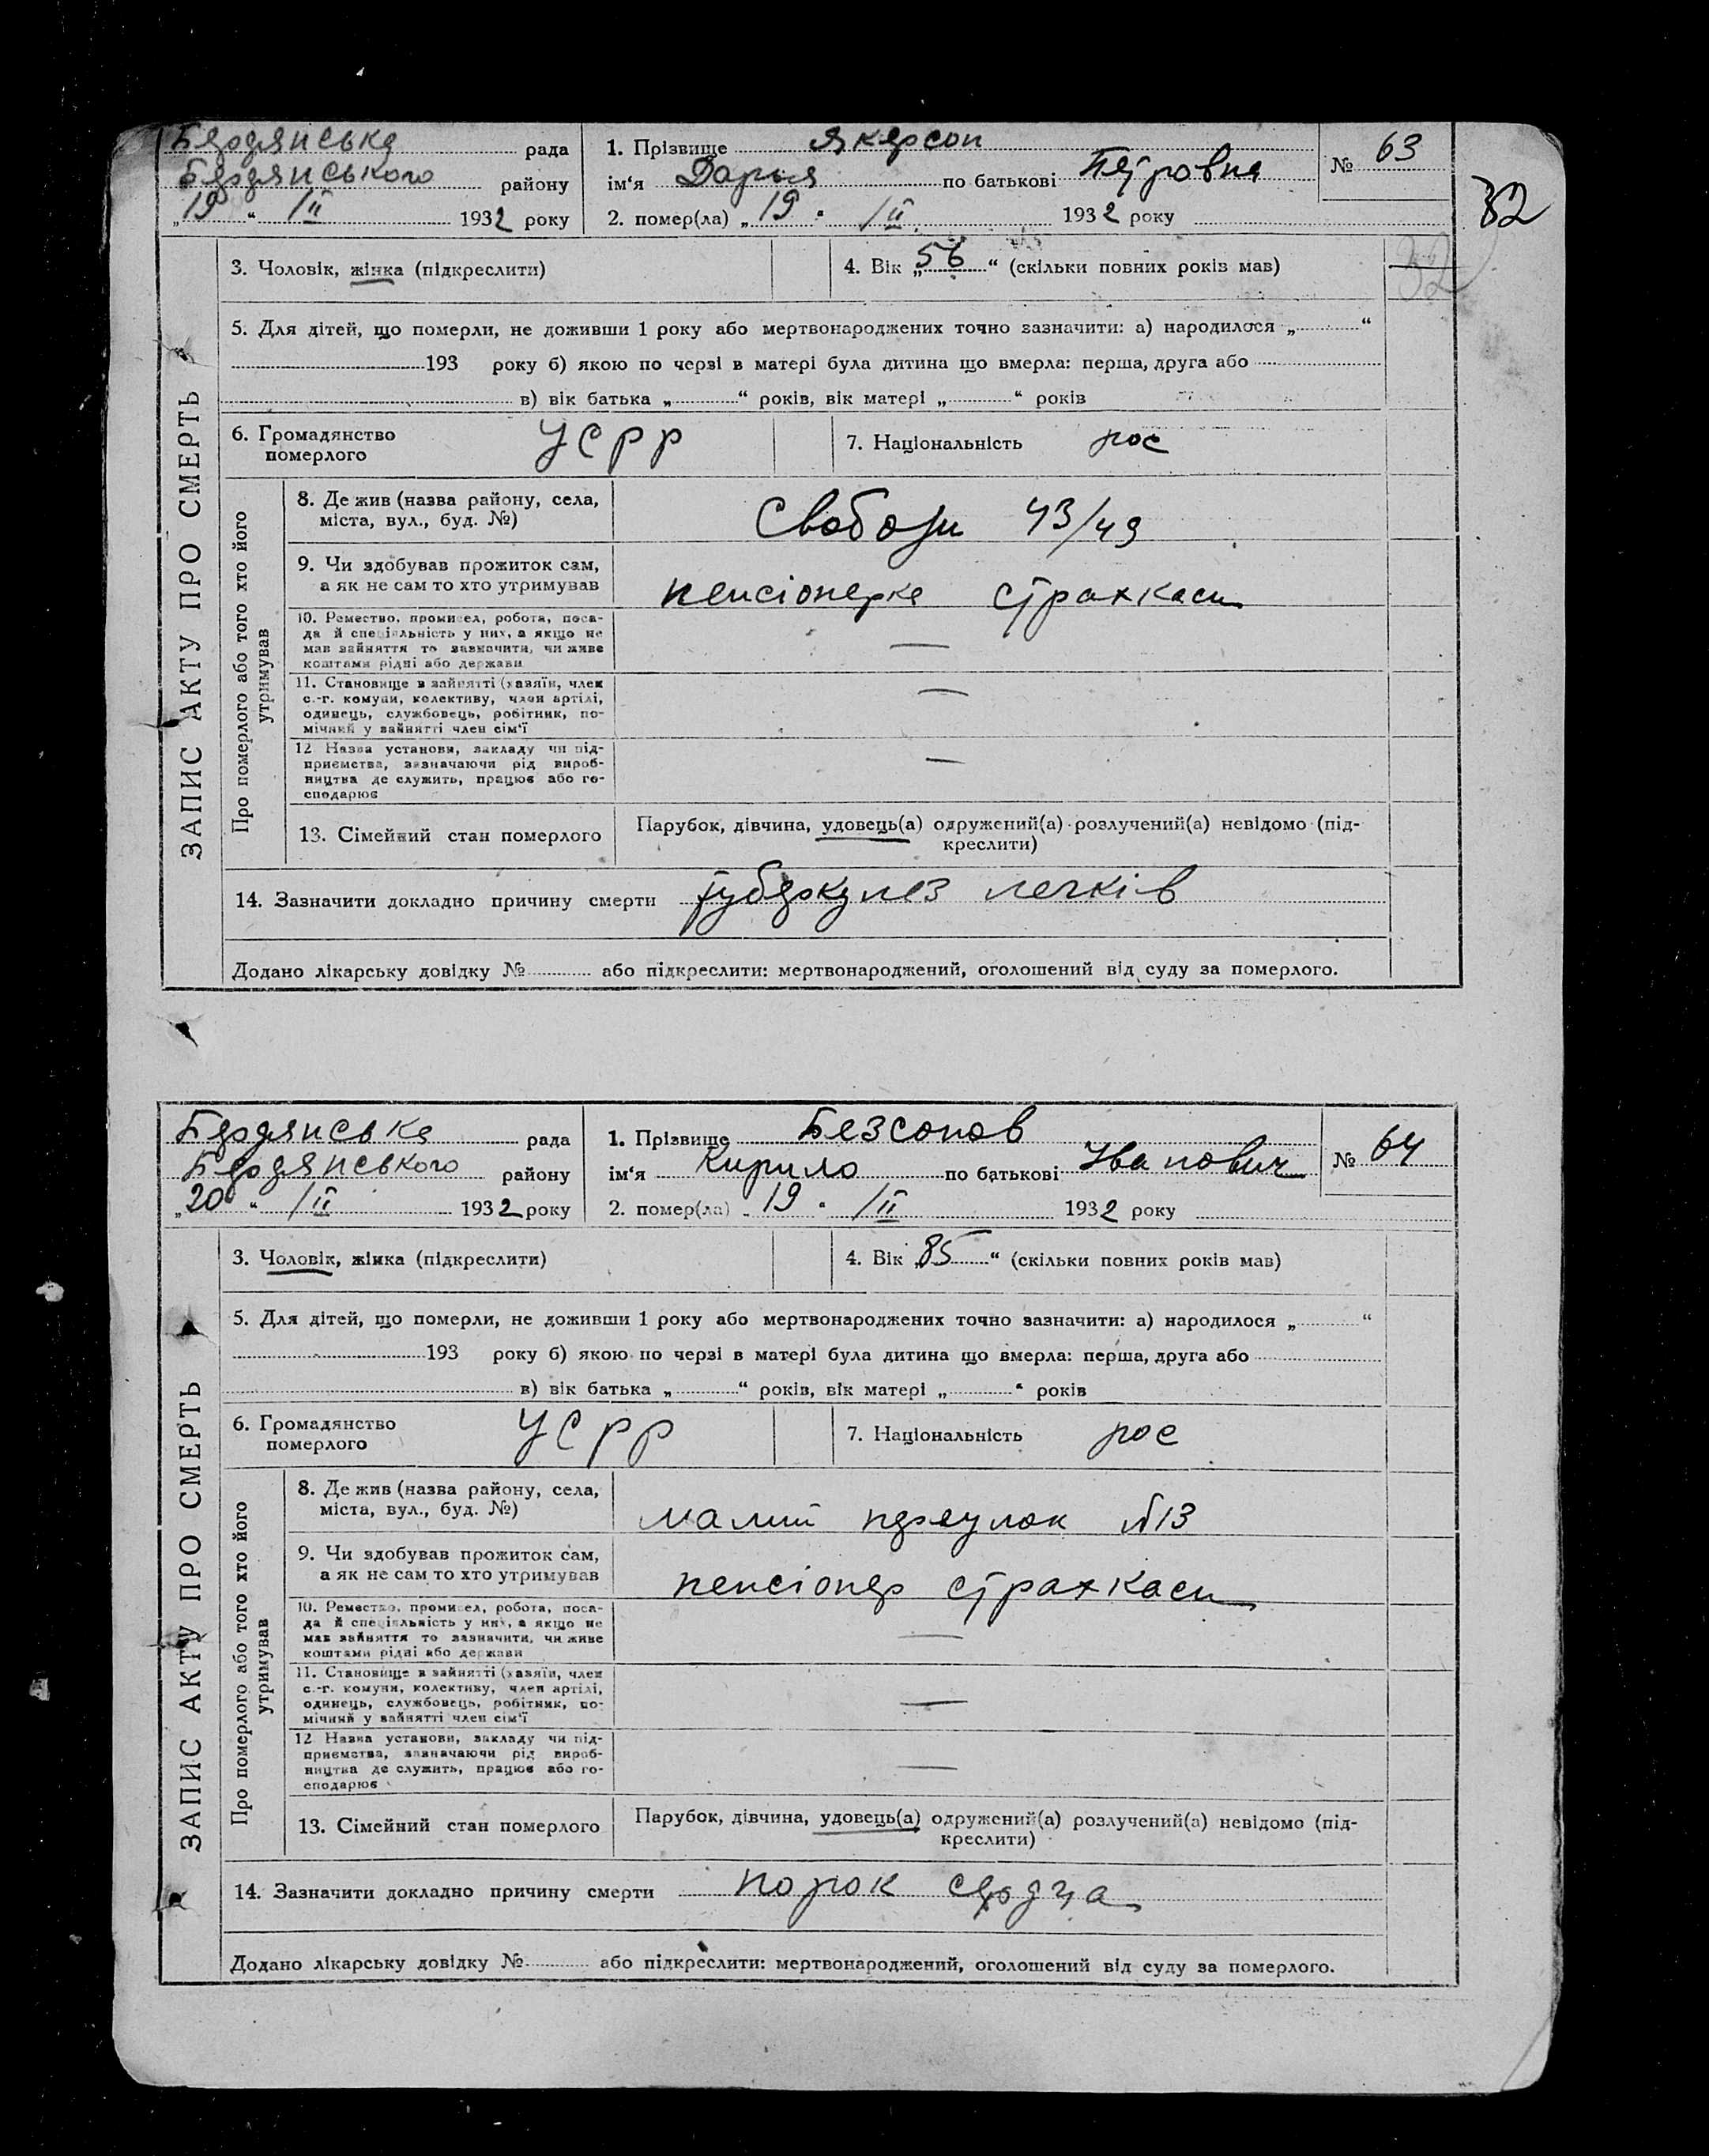 Бердянська рада 1. Прізвище Якерсон № 63
Бердянського району ім‘я Дарья по батькові Петровна
„19“ /II 1932 року 2. помер(ла) „19“ /II 1932 року
32
32
3. Чоловік, жінка (підкреслити) 4. Вік „56“ (скільки повних років мав)
5. Для дітей, що померли, не доживши 1 року або мертвонароджених точно зазначити: а) народилося „ “
193 року б) якою по черзі в матері була дитина що вмерла: перша, друга або
в) вік батька „ “ років, вік матері „ “ років
6. Громадянство
померлого
УСРР
7. Національність рос
ЗАПИС АКТУ ПРО СМЕРТЬ
Про померлого або того хто його
утримував
8. Де жив (назва району, села,
міста, вул., буд. №)
Свободи 43/49
9. Чи здобував прожиток сам,
а як не сам то хто утримував
пенсіонерка страхкаси
10. Ремество, промисел, робота, поса-
да й спеціяльність у них, а якщо не
мав зайняття то зазначити, чи живе
коштами рідні або держави
—
11. Становище в зайнятті (хазяїн, член
с.-г. комуни, колективу, член артілі,
одинець, службовець, робітник, по-
мічний у зайнятті член сім‘ї
—
12 Назва установи, закладу чи під-
приємства, зазначаючи рід вироб-
ництва де служить, працює або го-
сподарює
—
13. Сімейний стан померлого Парубок, дівчина, удовець(а) одружений(а) розлучений(а) невідомо (під-
креслити)
14. Зазначити докладно причину смерти туберкулез легків
Додано лікарську довідку № або підкреслити: мертвонароджений, оголошений від суду за померлого.
Бердянська рада 1. Прізвище Безсонов № 64
Бердянського району ім‘я Кирило по батькові Іванович
„20“ /II 1932 року 2. помер(ла) „19“ /II 1932 року
3. Чоловік, жінка (підкреслити) 4. Вік „85“ (скільки повних років мав)
5. Для дітей, що померли, не доживши 1 року або мертвонароджених точно зазначити: а) народилося „ “
193 року б) якою по черзі в матері була дитина що вмерла: перша, друга або
в) вік батька „ “ років, вік матері „ “ років
6. Громадянство
померлого
УСРР
7. Національність рос
ЗАПИС АКТУ ПРО СМЕРТЬ
Про померлого або того хто його
утримував
8. Де жив (назва району, села,
міста, вул., буд. №)
малий переулок №13
9. Чи здобував прожиток сам,
а як не сам то хто утримував
пенсіонер страхкаси
10. Ремество, промисел, робота, поса-
да й спеціяльність у них, а якщо не
мав зайняття то зазначити, чи живе
коштами рідні або держави
—
11. Становище в зайнятті (хазяїн, член
с.-г. комуни, колективу, член артілі,
одинець, службовець, робітник, по-
мічний у зайнятті член сім‘ї
—
12 Назва установи, закладу чи під-
приємства, зазначаючи рід вироб-
ництва де служить, працює або го-
сподарює
—
13. Сімейний стан померлого Парубок, дівчина, удовець(а) одружений(а) розлучений(а) невідомо (під-
креслити)
14. Зазначити докладно причину смерти порок сердца
Додано лікарську довідку № або підкреслити: мертвонароджений, оголошений від суду за померлого.